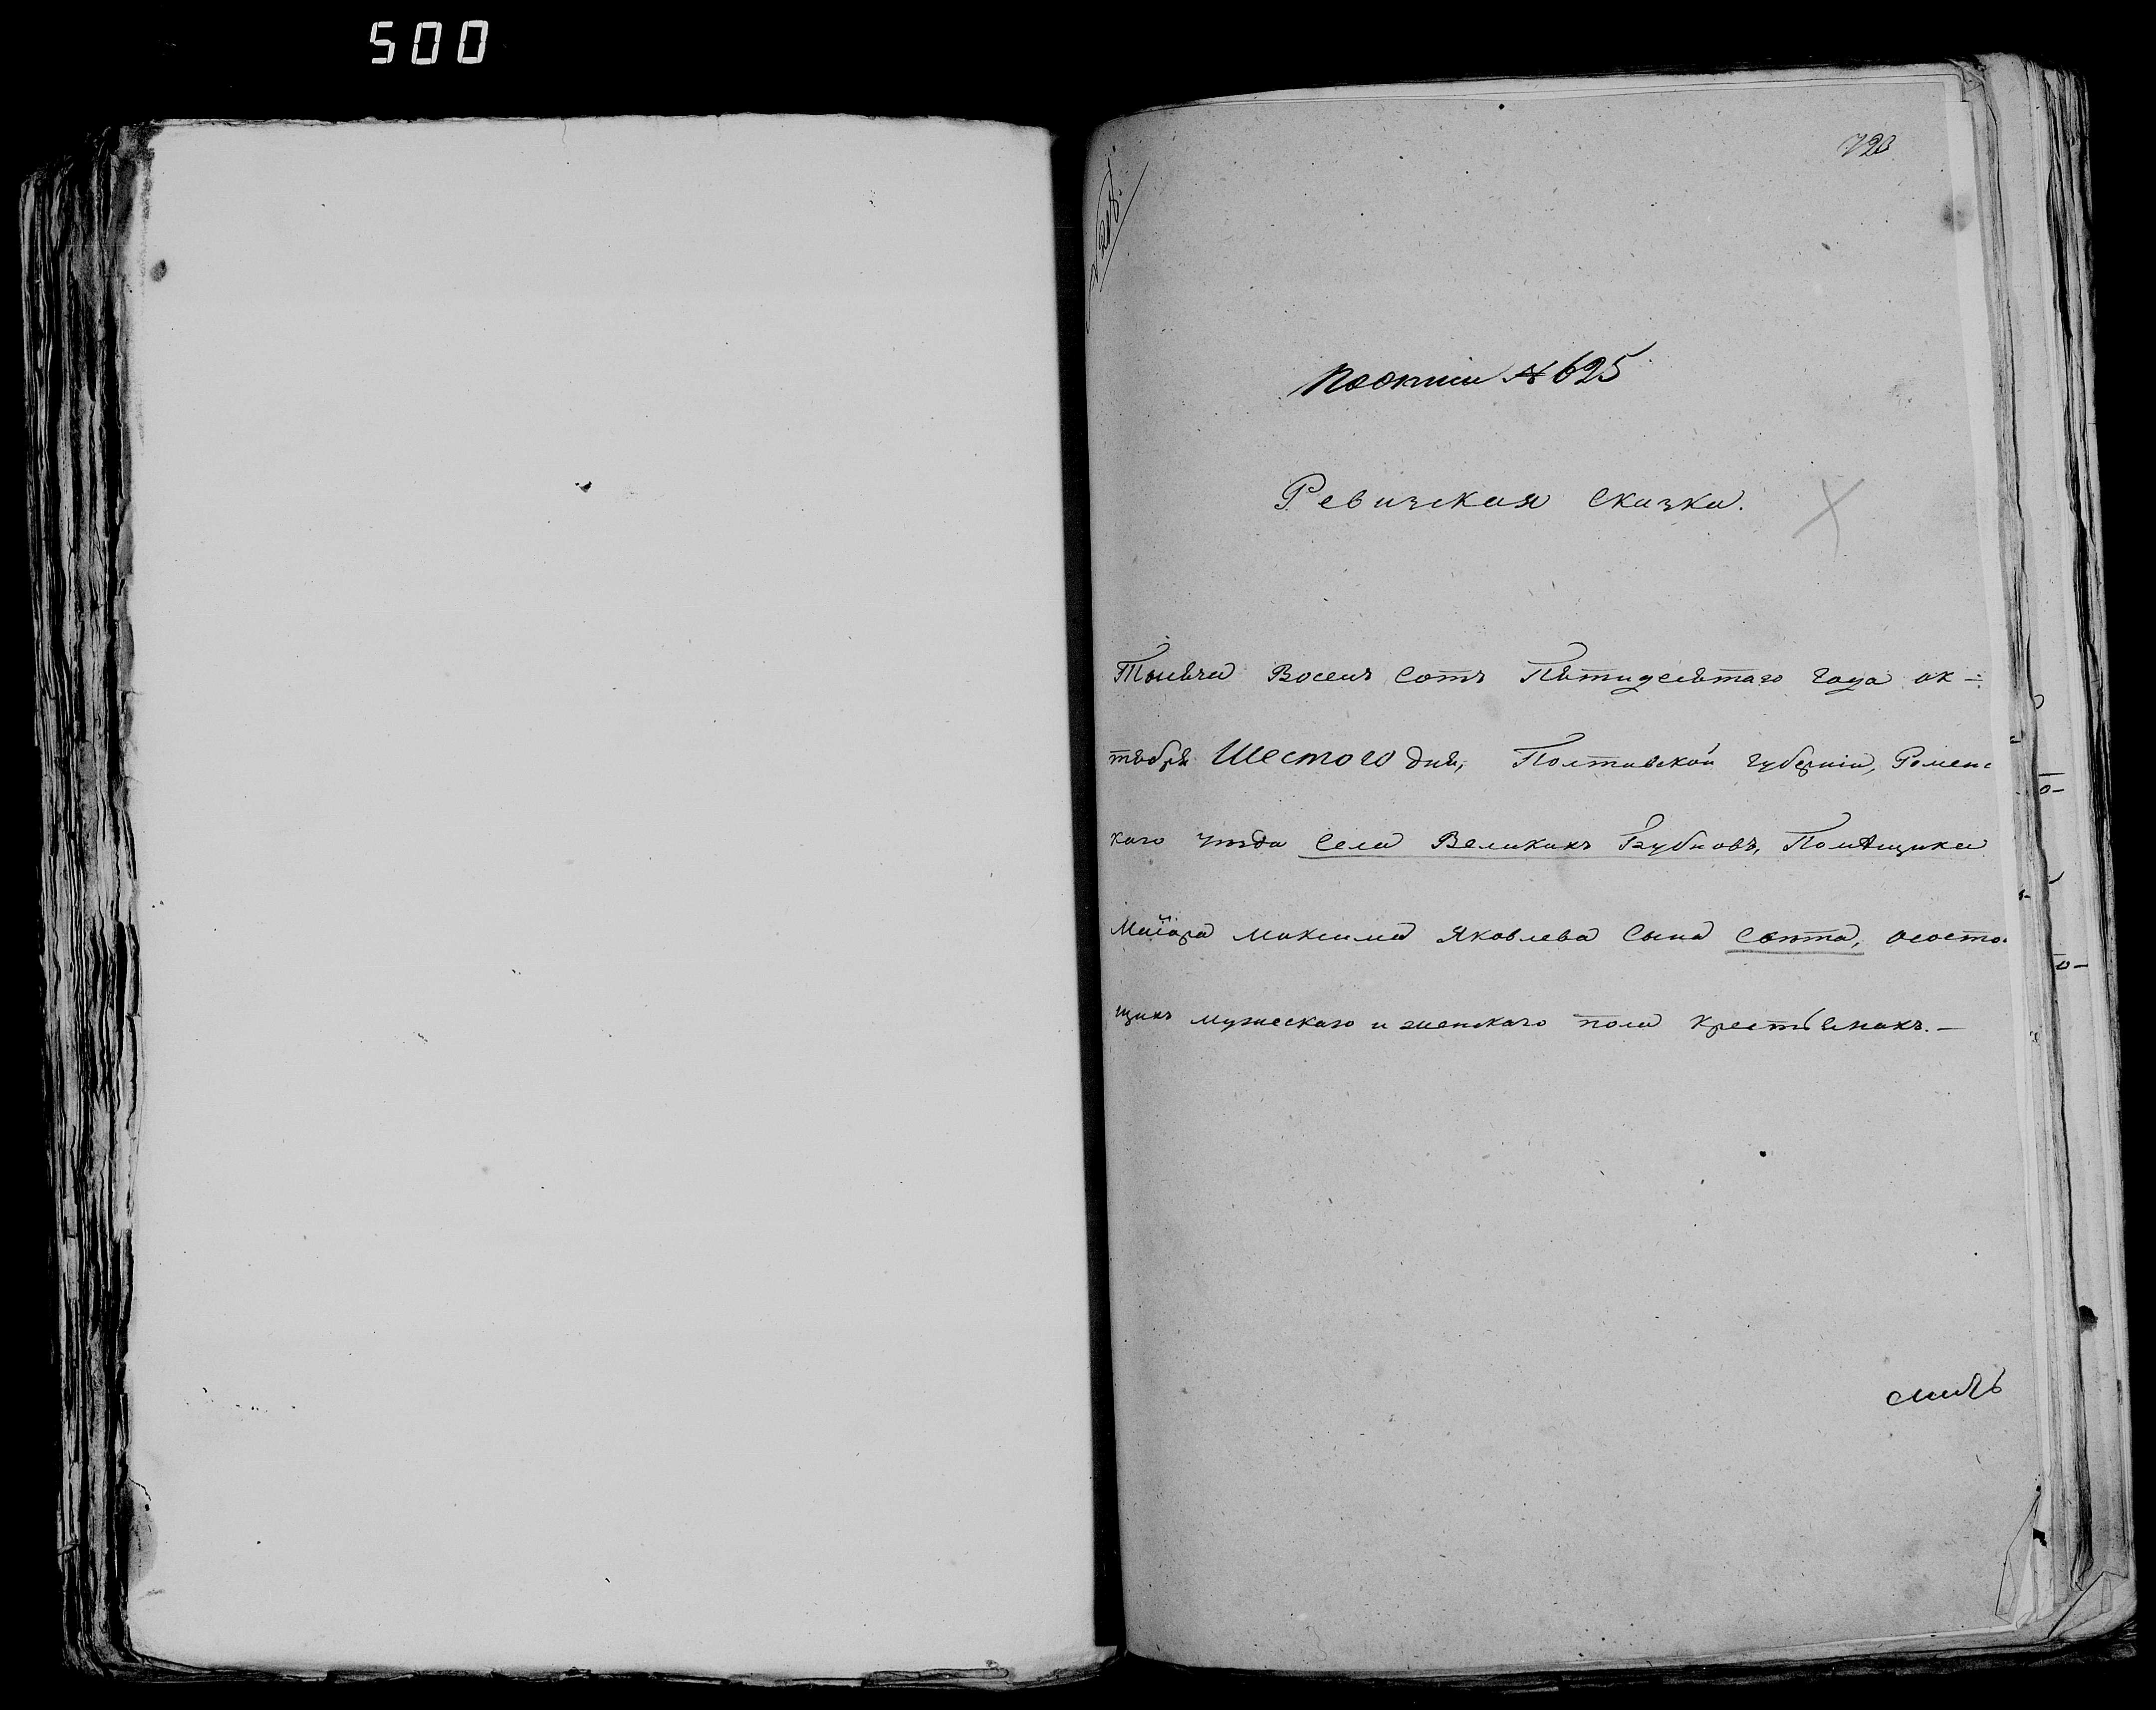 500
723
По описи № 625
Ревизская сказка.
Тысяча Восемь сотъ Пятидесятаго года ок-
тября Шестого дня, Полтавской губерніи, Роменс
каго уѣзда села Великихъ Бубновъ, Помѣщика
Маіора Максима Яковлева сына о состо
щихъ мужескаго и женскаго пола крестьянахъ.—